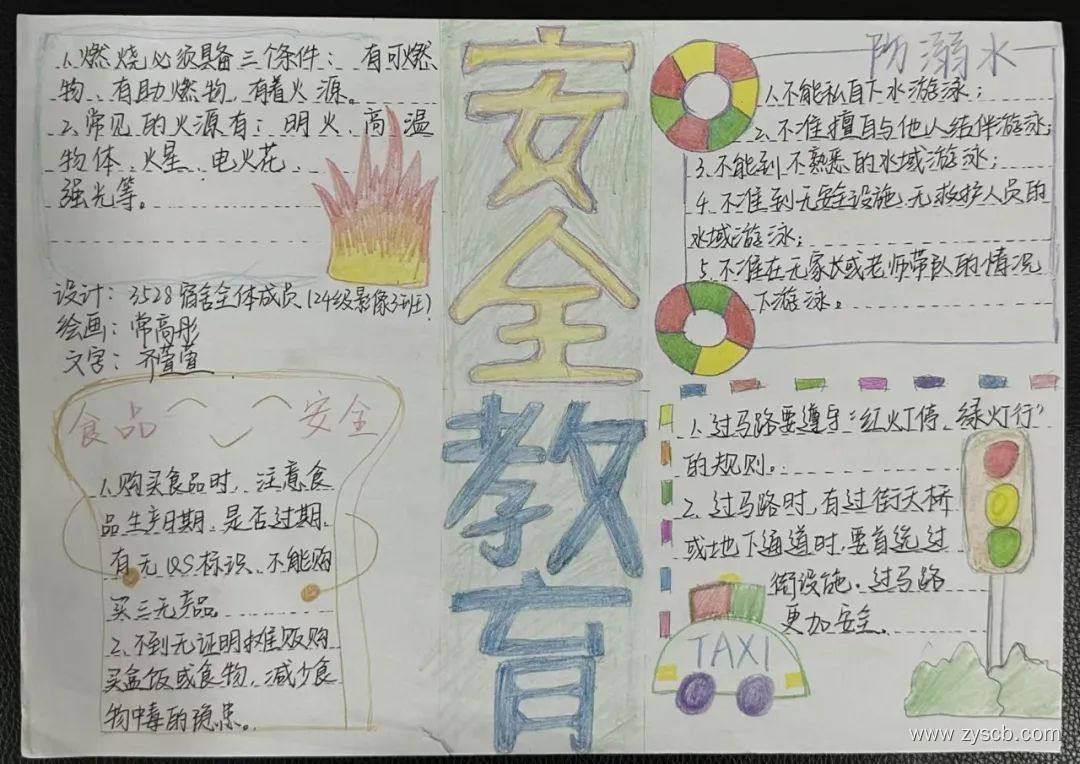 安全教育
1.燃烧必须具备三个条件：有可燃
物、有助燃物、有着火源。
2.常见的火源有：明火、高温
物体、火星、电火花、
强光等。
设计：3528宿舍全体成员(24级影像3班)
绘画：常高彤
文字：齐萱萱
食品安全
1.购买食品时，注意食
品生产日期、是否过期、
有无QS标识、不能购
买三无产品。
2.不到无证明摊贩购
买盒饭或食物，减少食
物中毒的隐患。
防溺水
1.不能私自下水游泳；
2.不准擅自与他人结伴游泳；
3.不能到不熟悉的水域游泳；
4.不准到无安全设施、无救护人员的
水域游泳；
5.不准在无家长或老师带队的情况
下游泳。
1.过马路要遵守“红灯停，绿灯行”
的规则。
2.过马路时，有过街天桥
或地下通道时，要首选过
街设施，过马路
更加安全。
TAXI
www.zyscb.com